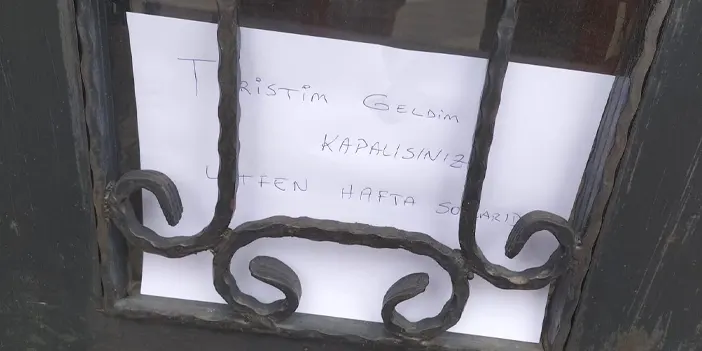 TURİSTİM GELDİM
KAPALISINIZ
LÜTFEN HAFTA